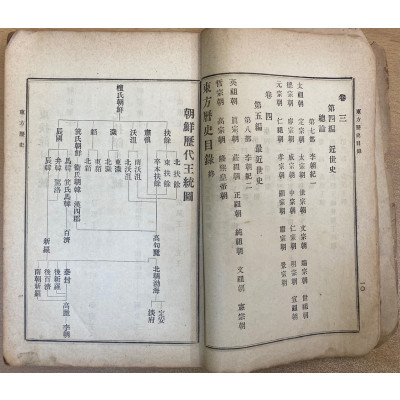 東方歷史目錄
一〇
卷三
第四編 近世史
總論
第七部 李朝紀一
太祖朝 定宗朝 太宗朝 世宗朝 文宗朝 端宗朝 世祖朝
德宗朝 睿宗朝 成宗朝 中宗朝 仁宗朝 明宗朝 宣祖朝
元宗朝 仁祖朝 孝宗朝 顯宗朝 肅宗朝 景宗朝
卷四
第五編 最近世史
第八部 李朝紀二
英祖朝 眞宗朝 莊祖朝 正祖朝 純祖朝 文祖朝 憲宗朝
哲宗朝 高宗朝 隆熙皇帝朝
東方歷史目錄 終
朝鮮歷代王統圖
檀氏朝鮮
扶餘
北扶餘
東扶餘
卒本扶餘
高句麗
北朝渤海
定安
濊貊
沃沮
南沃沮
北沃沮
東濊
北濊
箕氏朝鮮
衛氏朝鮮
漢四郡
馬韓
箕氏馬韓
百濟
辰國
弁韓
駕洛
新羅
泰封
高麗
李朝
後新羅
後百濟
南朝新羅
東方歷史